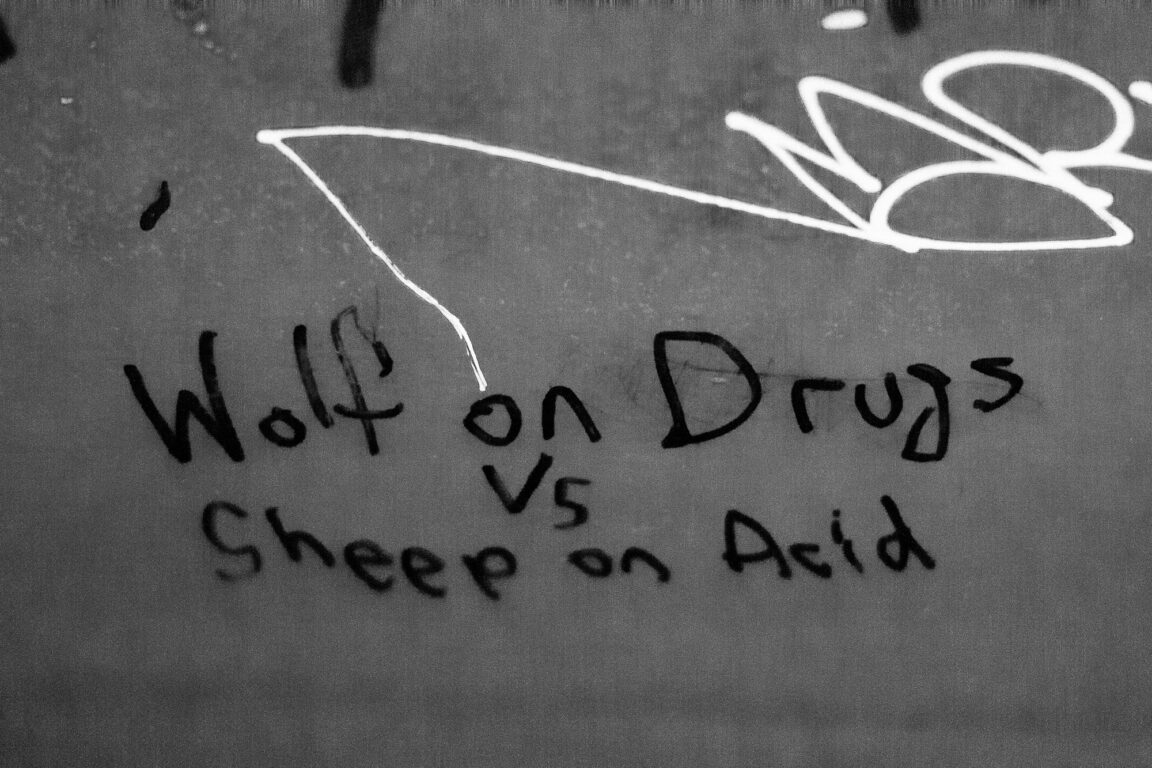 Wolf on Drugs
Vs
Sheep on Acid